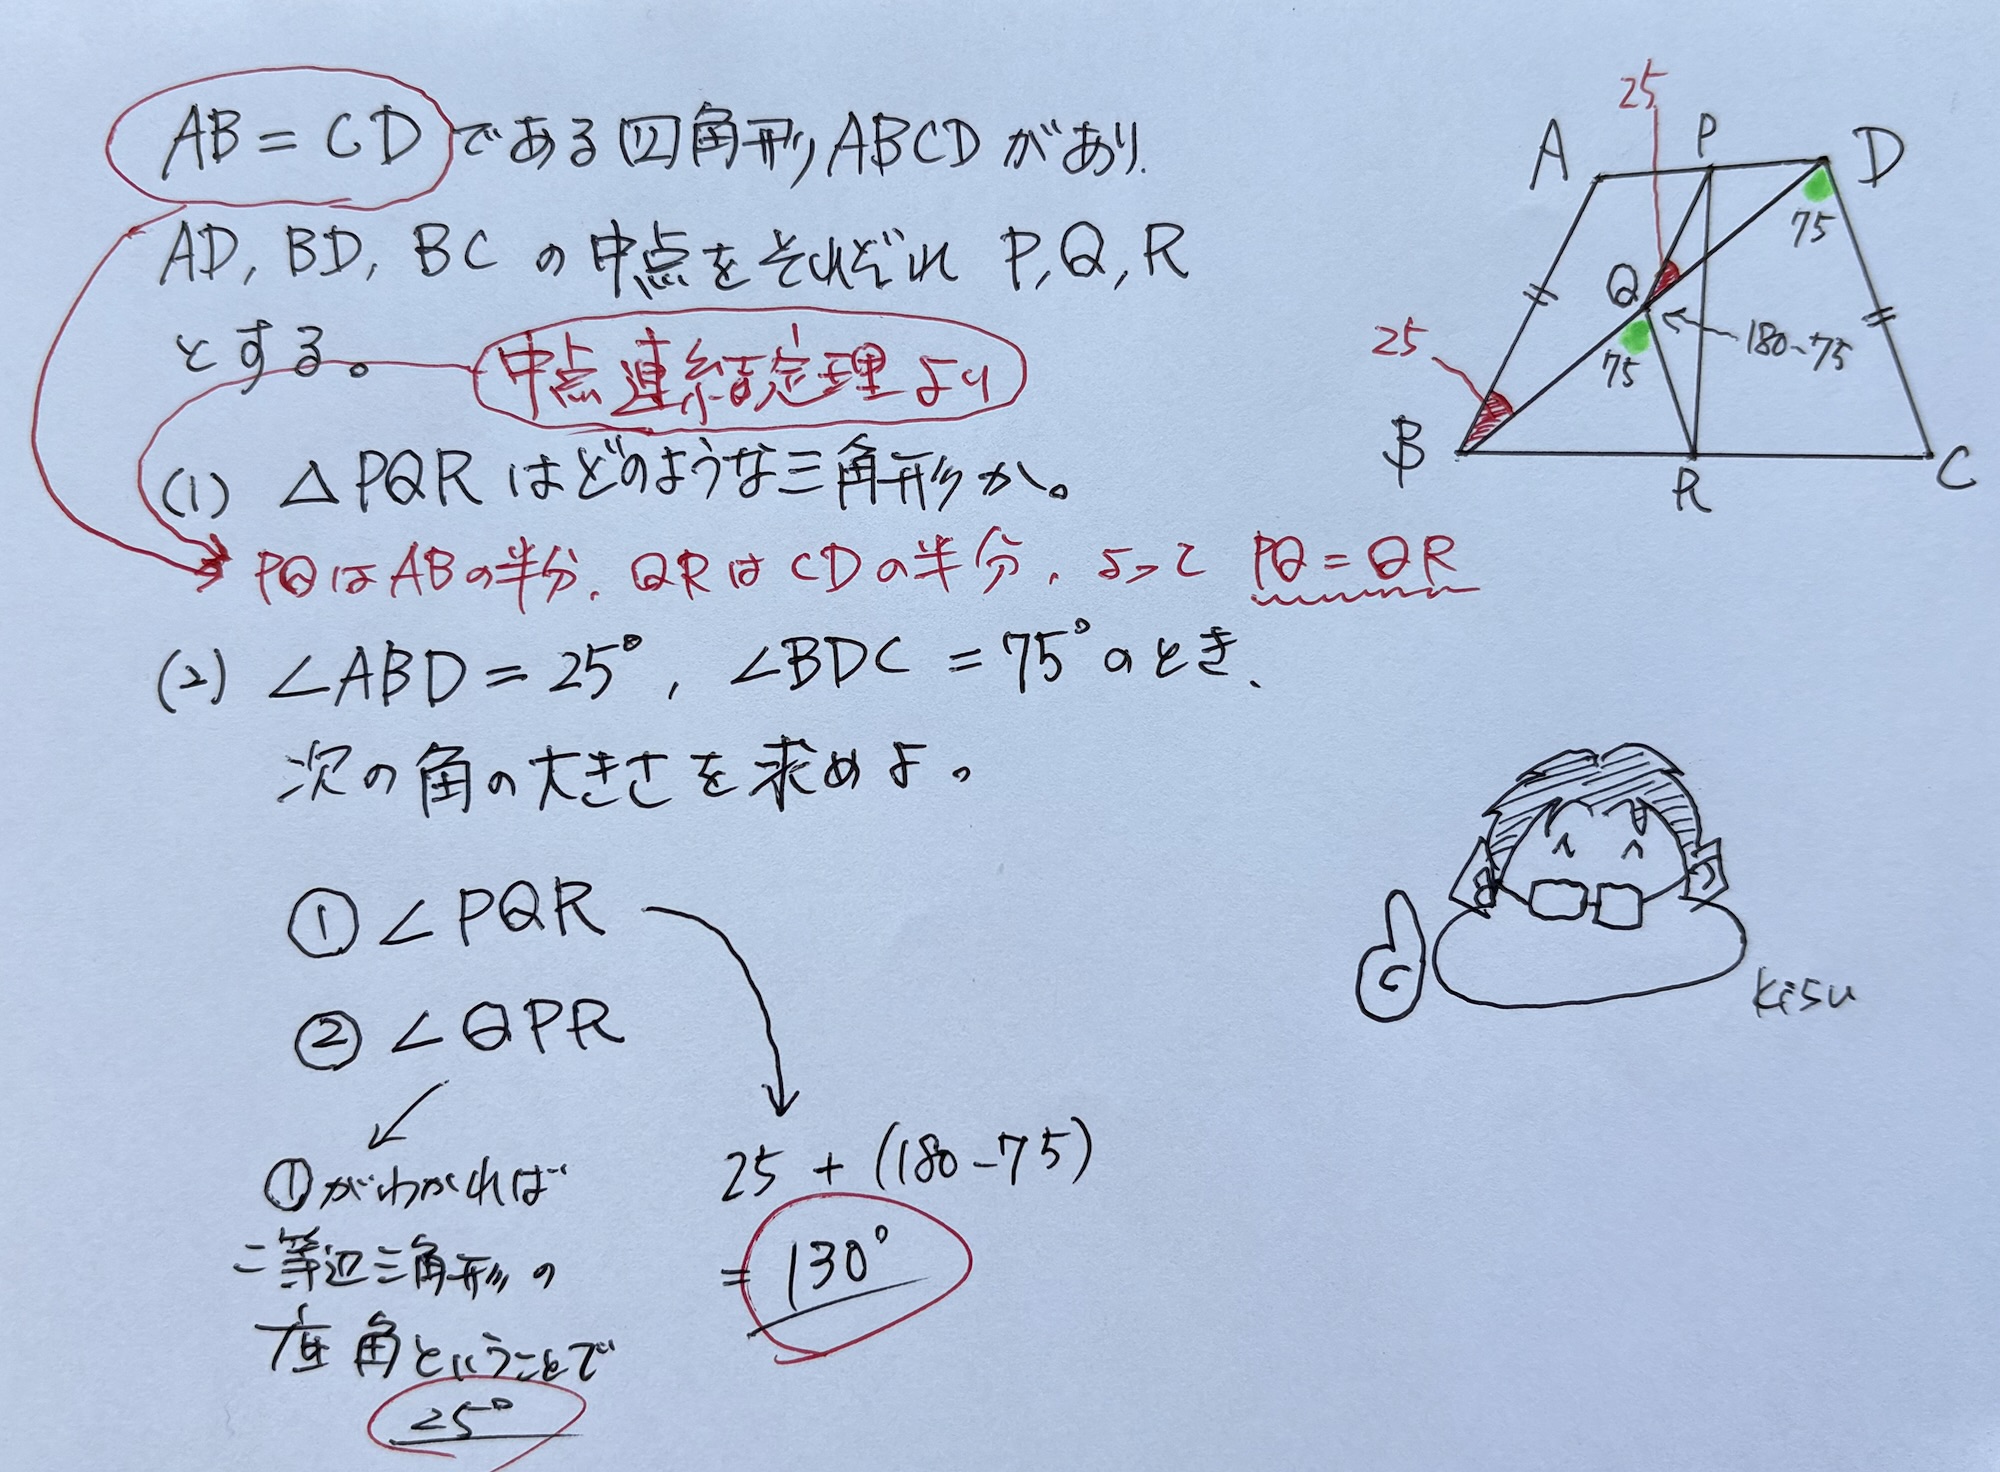 AB = CD である四角形ABCDがあり、
AD, BD, BC の中点をそれぞれ P, Q, R
とする。
中点連結定理より
(1) △PQRはどのような三角形か。
PQはABの半分、QRはCDの半分、よって PQ = QR
(2) ∠ABD = 25°, ∠BDC = 75°のとき、
次の角の大きさを求めよ。
① ∠PQR
② ∠QPR
①がわかれば
二等辺三角形の
底角ということで
25°
25 + (180-75)
= 130°
25
A
P
D
75
Q
180-75
25
75
B
R
C
kisu